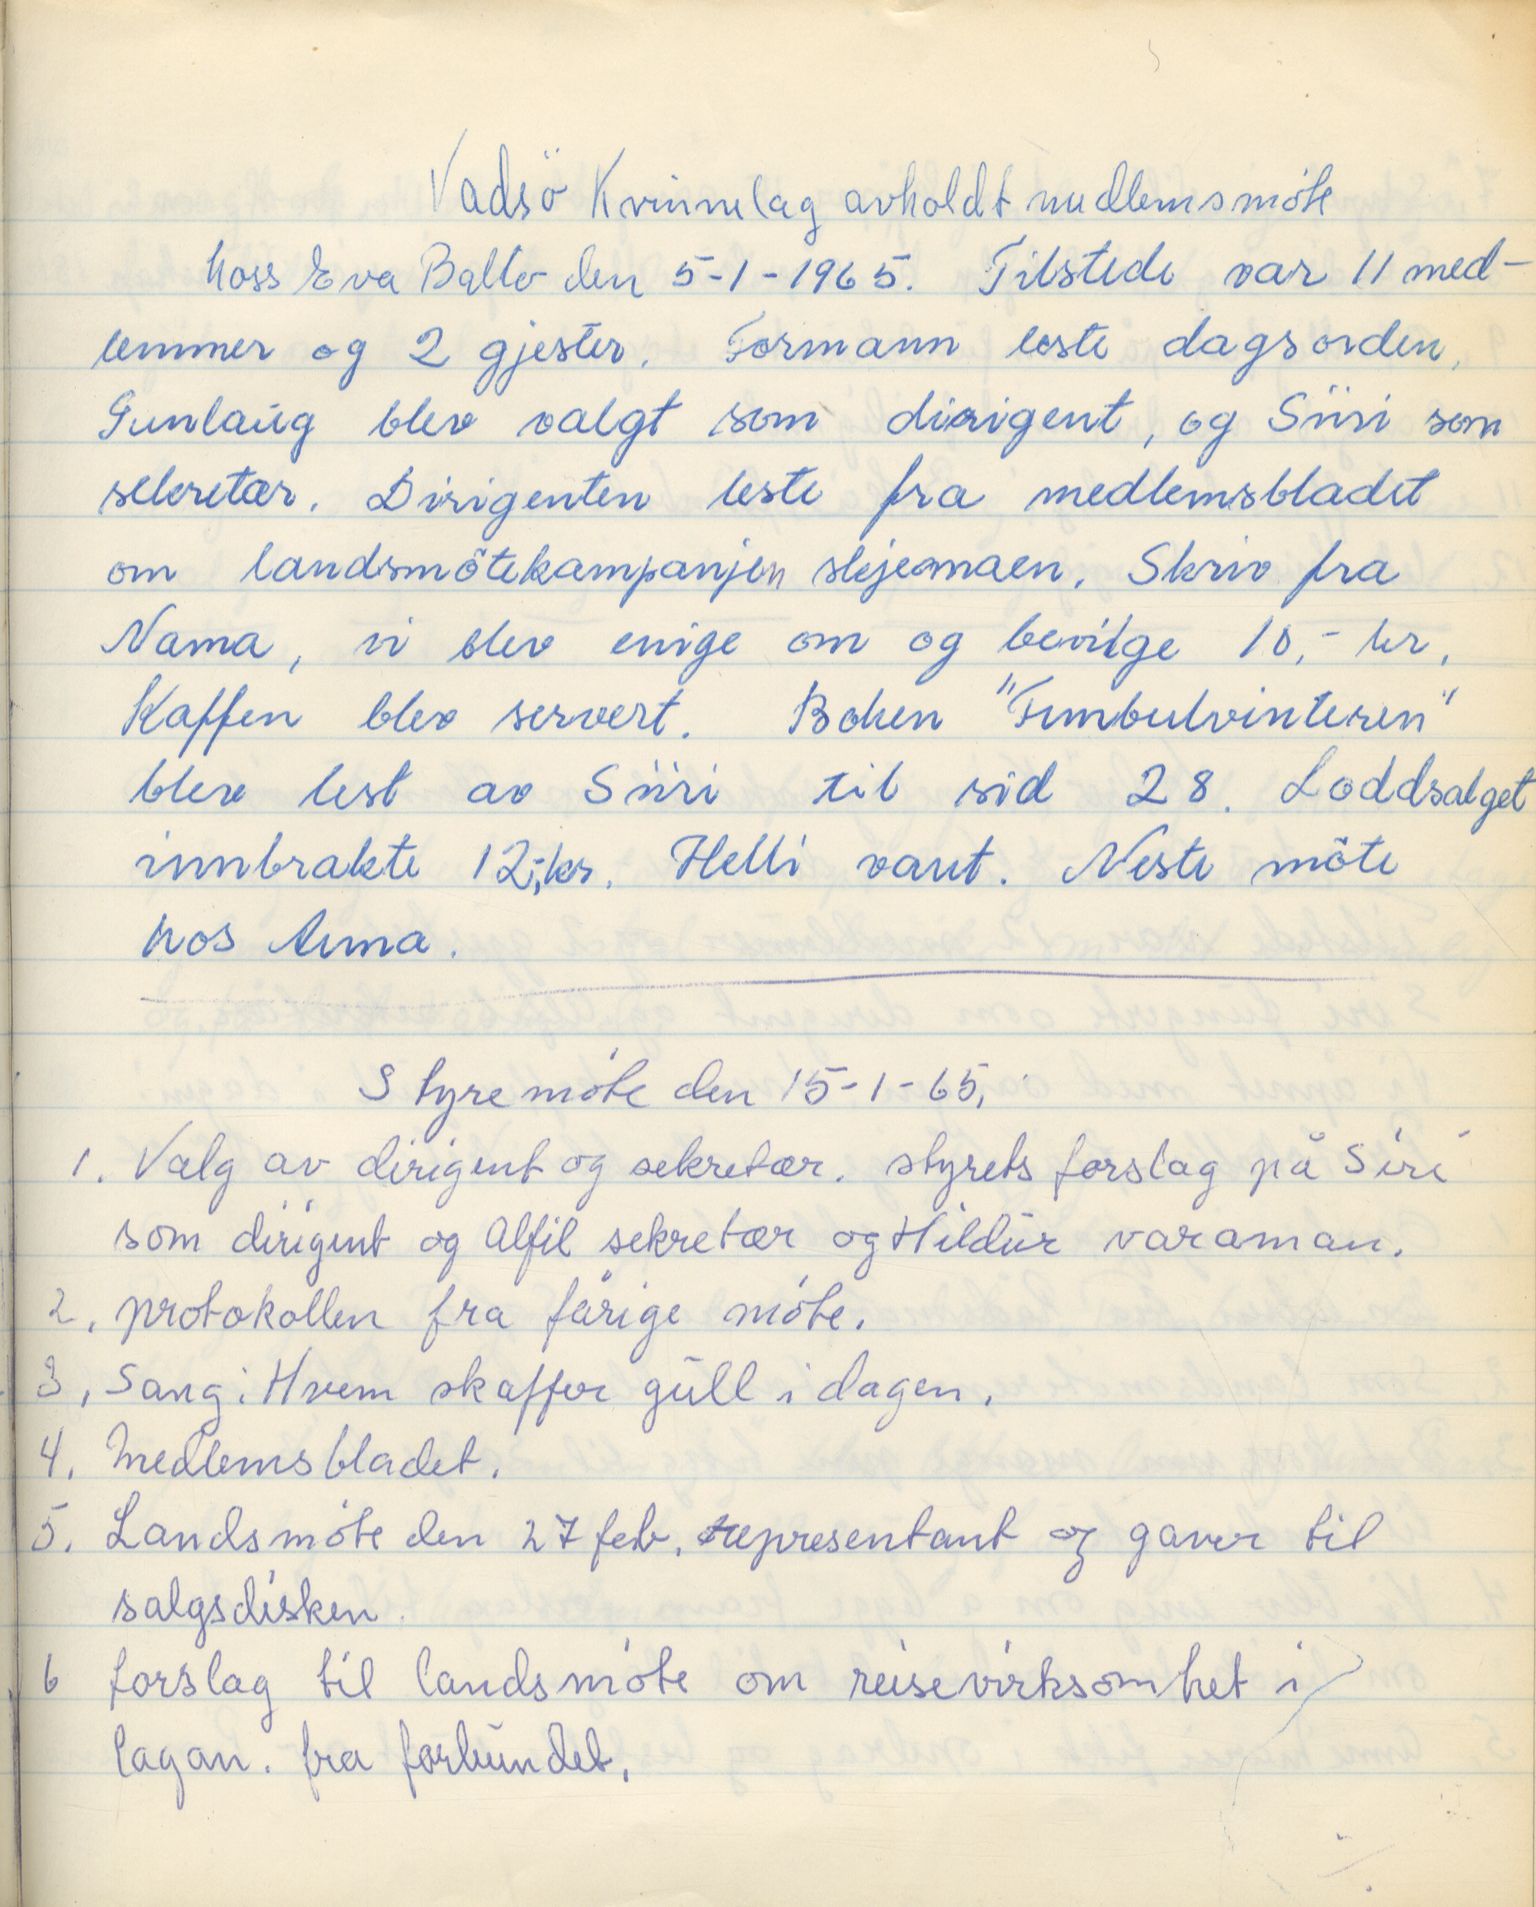 Vadsö Kvinnelag avholdt medlemsmöte
hoss Eva Ballo den 5-1-1965. Tilstede var 11 med-
lemmer og 2 gjester. Formann leste dagsorden,
Gunlaug blev valgt som dirigent, og Siiri som
sekretær. Dirigenten leste fra medlemsbladet
om landsmötekampanjen skjemaen. Skriv fra
Nama, vi blev enige om og bevilge 10,- kr.
Kaffen blev servert. Boken "Fimbulvinteren"
blev lest av Siiri til sid 28. Loddsalget
innbrakte 12,- kr. Helli vant. Neste möte
hos Anna.
Styremöte den 15-1-65.
1. Valg av dirigent og sekretær. styrets forslag på Siri
som dirigent og Alfil sekretær og Hildur varaman.
2. protokollen fra førige möte.
3, Sang: Hvem skaffer gull i dagen.
4. Medlemsbladet.
5. Landsmöte den 27 feb. representant og gaver til
salgsdisken.
6 forslag til landsmöte om reisevirksomhet i
lagan. fra forbundet.